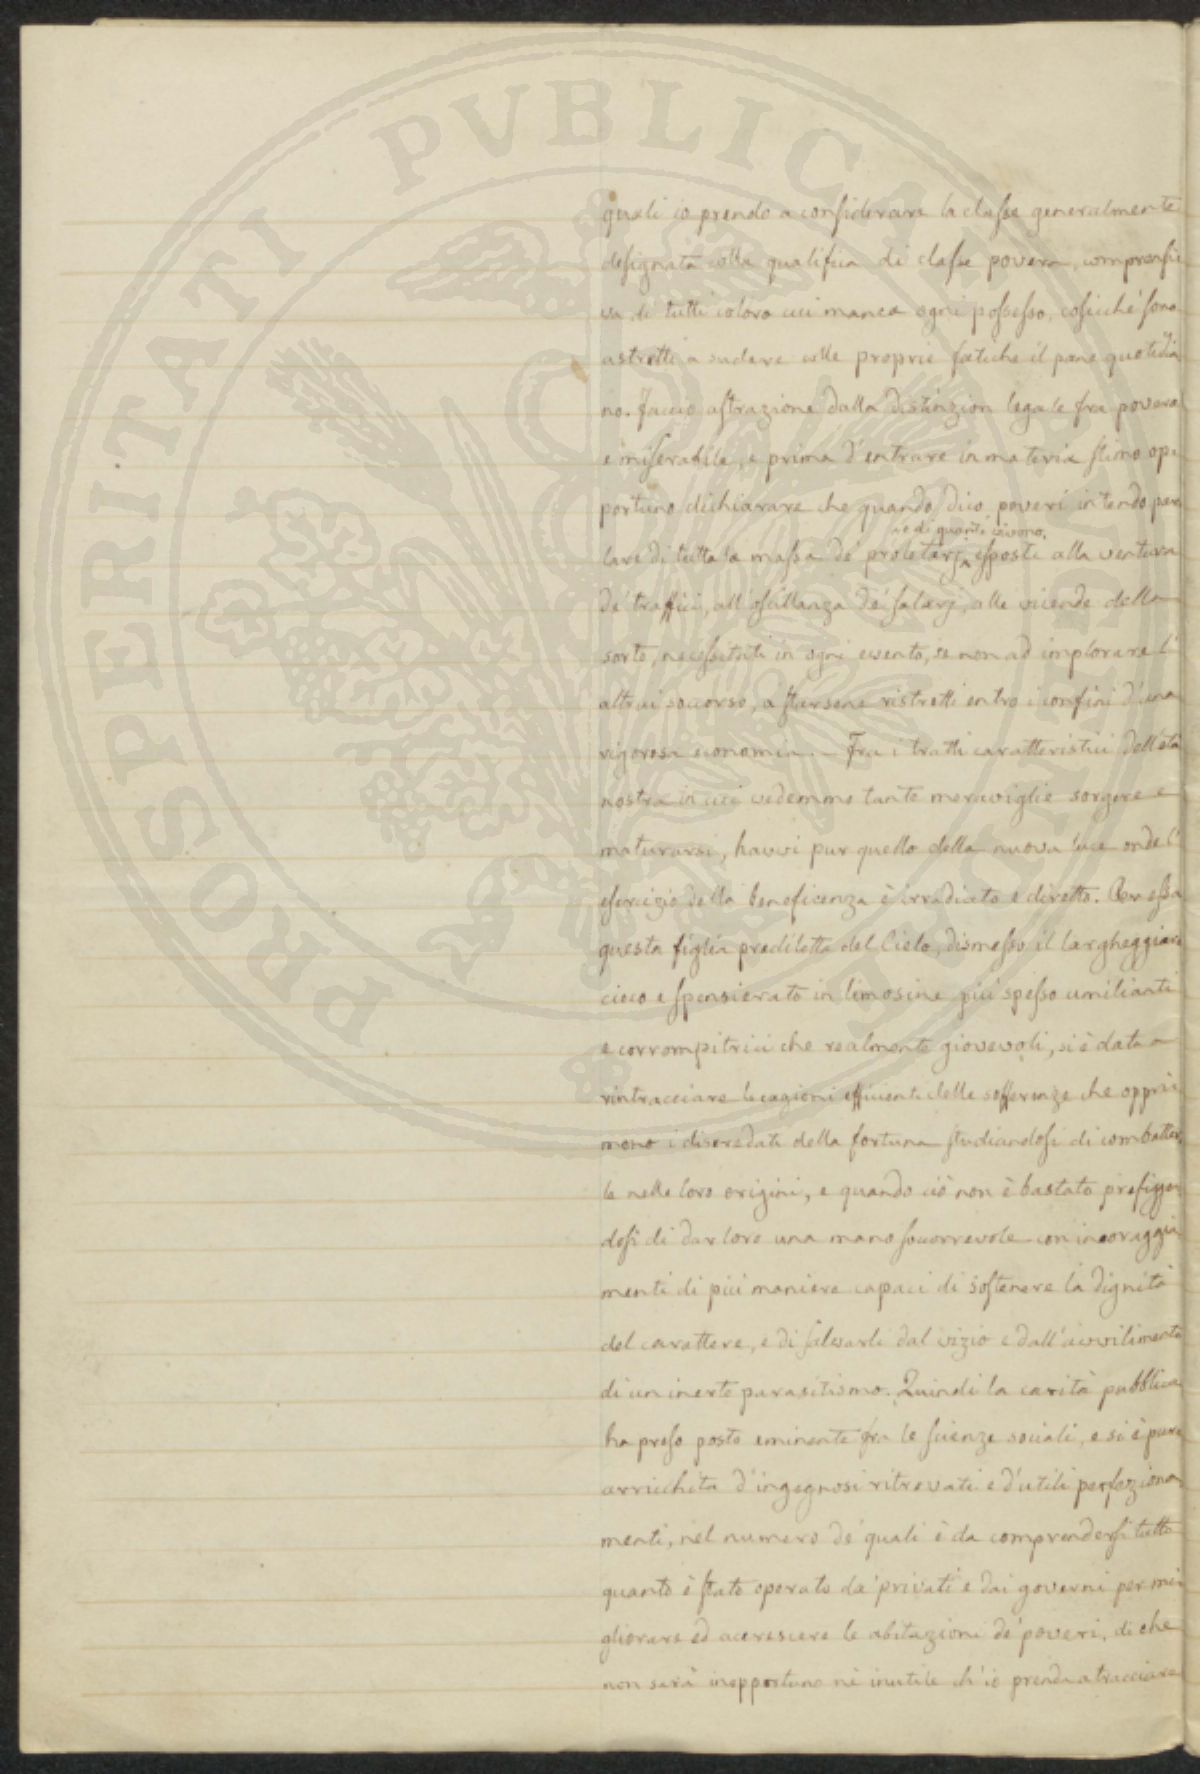 PROSPERITATI PVBLICAE
quali io prendo a considerare la classe generalmente
designata colla qualifica di classe povera, comprensi
va di tutti coloro cui manca ogni possesso, cosicchè sono
astretti a sudare colle proprie fatiche il pane quotidia
no. Faccio astrazione dalla distinzion legale fra povero
e miserabile, e prima d'entrare in materia stimo op
portuno dichiarare che quando dico poveri intendo par
e di quanti vivono
lare di tutta la massa de' proletarj esposti alla ventura
de' traffici, all'oscillanza de' salarj, alle vicende della
sorte, necessitati in ogni evento, se non ad implorare l'
altrui soccorso, a starsene ristretti entro i confini d'una
rigorosa economia. – Fra i tratti caratteristici dell'età
nostra in cui vedemmo tante meraviglie sorgere e
maturarsi, havvi pur quello della nuova luce onde l'
esercizio della beneficenza è irradiato e diretto. Per essa
questa figlia prediletta del Cielo, dismesso il largheggiare
cieco e spensierato in limosine più spesso umilianti
e corrompitrici che realmente giovevoli, si è data a
rintracciare le cagioni efficienti delle sofferenze che oppri
mono i diseredati della fortuna studiandosi di combatter
le nelle loro origini, e quando ciò non è bastato prefiggen
dosi di dar loro una mano soccorrevole con incoraggia
menti di più maniere capaci di sostenere la dignità
del carattere, e di salvarli dal vizio e dall'avvilimento
di un inerte parasitismo. Quindi la carità pubblica
ha preso posto eminente fra le scienze sociali, e si è pure
arricchita d'ingegnosi ritrovati e d'utili perfeziona
menti, nel numero de' quali è da comprendersi tutto
quanto è stato operato da' privati e dai governi per mi
gliorare ed accrescere le abitazioni de' poveri, di che
non sarà inopportuno nè inutile ch'io prenda a tracciare